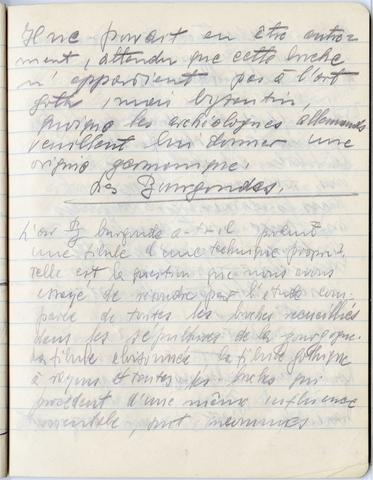 Il ne pouvait en être autre-
ment, attendu que cette boucle
n'appartient pas à l'art
goth, mais byzantin,
quoique les archéologues allemands
veuillent lui donner une
origine germanique.
Les Burgondes.
L'art burgonde a-t-il
une fibule d'une technique propre,
telle est la question que nous avons
essayé de résoudre par l'étude com-
parée de toutes les boucles recueillies
dans les sépultures de la Bourgogne.
La fibule cloisonnée la fibule gothique
à rayons et toutes les boucles qui
procèdent d'une même influence
orientale, sont inconnues